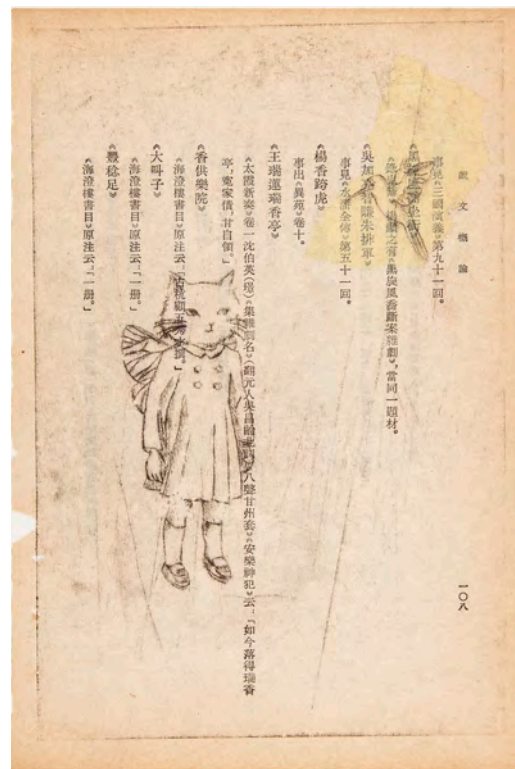 戲文概論
事見《三國演義》第九十一回。
《黑旋風喬
之有《黑旋風喬斷案雜劇》,當同一題材。
《吳加亮智賺朱排軍》
事見《水滸全傳》第五十一回。
《楊香跨虎》
事出《異苑》卷十。
《王瑞運瑞香亭》
《太霞新奏》卷一沈伯英(璟)《集雜劇名》(翻元人吳昌齡《八聲甘州套》《安樂神犯》云:「如今落得瑞香
亭,寃家債,甘自領。」
《香供樂院》
《海澄樓書目》原注云:「古杭
《大叫子》
《海澄樓書目》原注云:「一册。」
稔足》
《海澄樓書目》原注云:「一册。」
一〇八